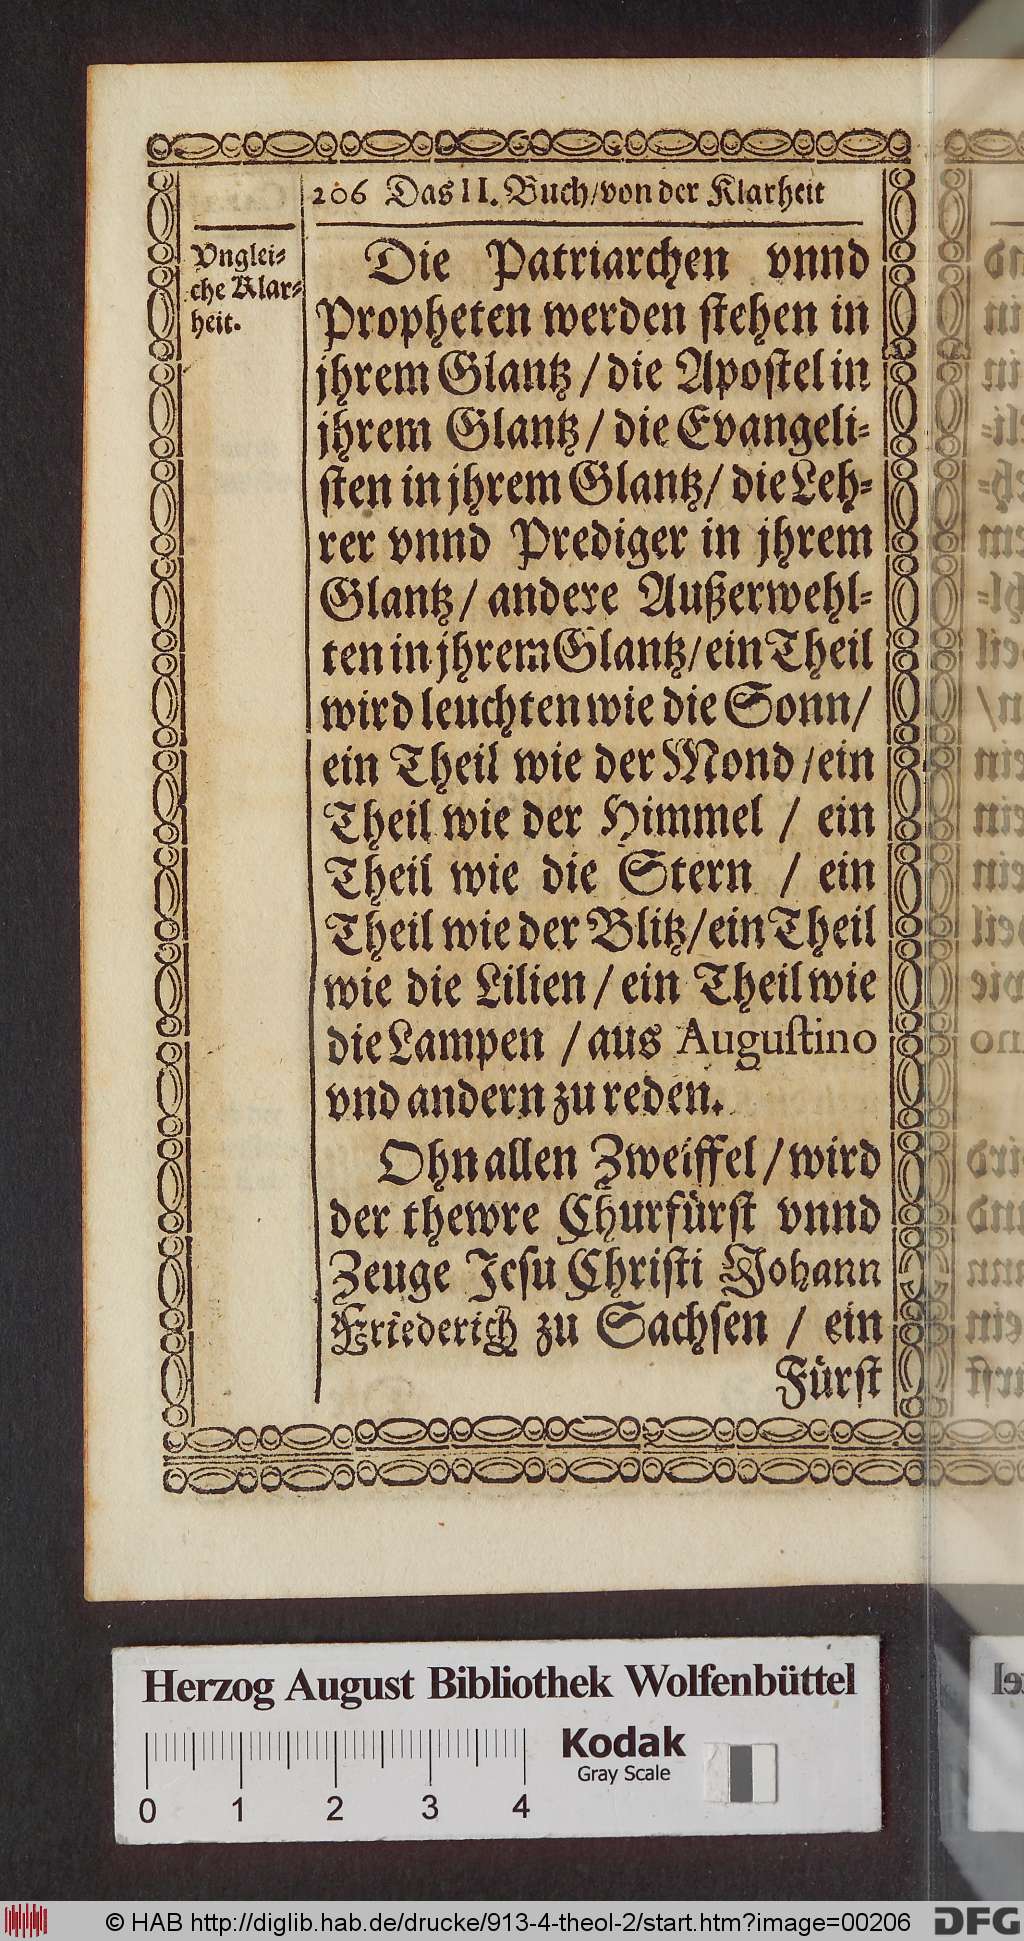 206 Das II. Buch/von der Klarheit
Vnglei-
che Klar-
heit.
Die Patriarchen vnnd
Propheten werden stehen in
jhrem Glantz / die Apostel in
jhrem Glantz / die Evangeli-
sten in jhrem Glantz / die Leh-
rer vnnd Prediger in jhrem
Glantz / andere Außerwehl-
ten in jhrem Glantz / ein Theil
wird leuchten wie die Sonn /
ein Theil wie der Mond / ein
Theil wie der Himmel / ein
Theil wie die Stern / ein
Theil wie der Blitz / ein Theil
wie die Lilien / ein Theil wie
die Lampen / aus Augustino
vnd andern zu reden.
Ohn allen Zweiffel / wird
der thewre Churfürst vnnd
Zeuge Jesu Christi Johann
Friederich zu Sachsen / ein
Fürst
Herzog August Bibliothek Wolfenbüttel
Kodak
Gray Scale
0 1 2 3 4
© HAB http://diglib.hab.de/drucke/913-4-theol-2/start.htm?image=00206
DFG